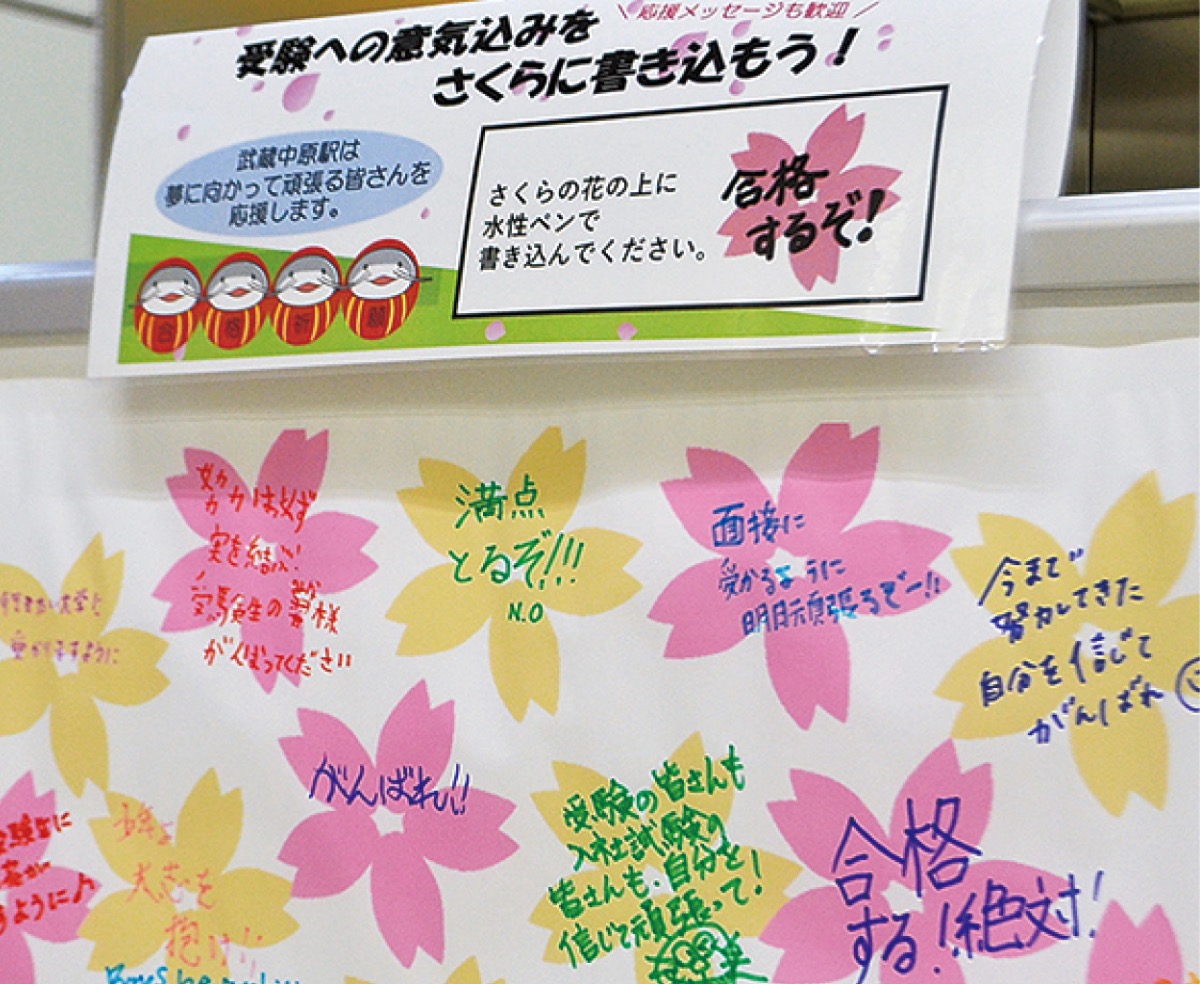 ＼応援メッセージも歓迎／
受験への意気込みを
さくらに書き込もう！
武蔵中原駅は
夢に向かって頑張る皆さんを
応援します。
さくらの花の上に
水性ペンで
書き込んでください。
合格
するぞ!
合
格
祈
願
努力は必ず
実を結ぶ!
受験生の皆様
がんばってください
満点
とるぞ!!!
N.O
面接に
受かるように
明日頑張るぞー!!
今まで
努力してきた
自分を信じて
がんばれ
大学に
受かりますように
がんばれ!!
受験の皆さんも
入社試験の
皆さんも、自分を
信じて頑張って!
合格
する!絶対!
受験生に
ように♪
少年よ
大志を
抱け!!
Boys be